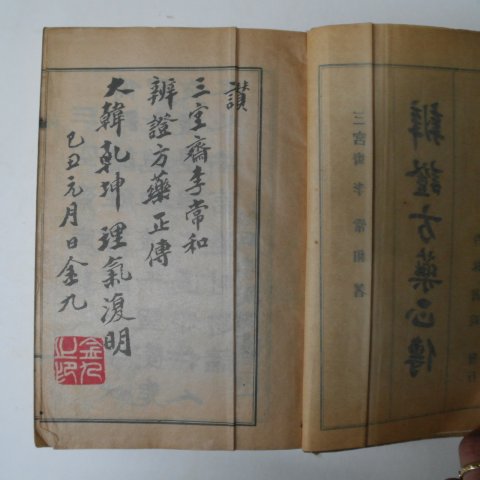 讃
三宮齋李常和
辨證方藥正傳
大韓乾坤 理氣復明
己丑元月日金九
金九之印
辨證方藥正傳
三宮齋 李常和 著